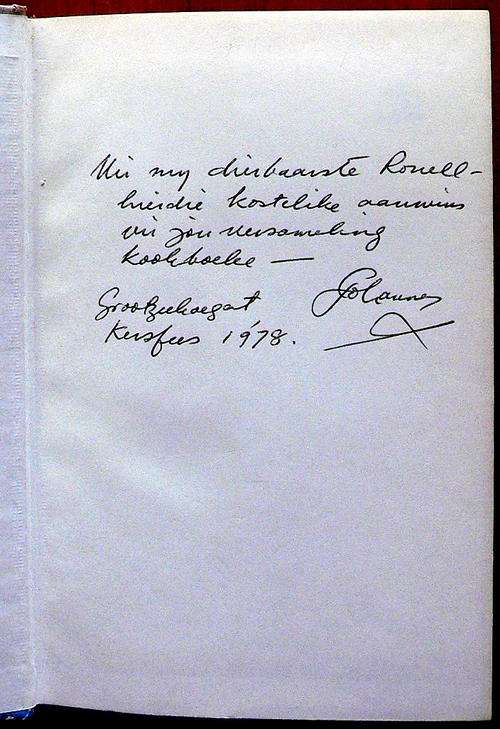 Vir my dierbaarste Ronell –
hierdie kostelike aanwins
vir jou versameling
kookboeke —
Johannes
Grootzeekoegat,
Kersfees 1978.